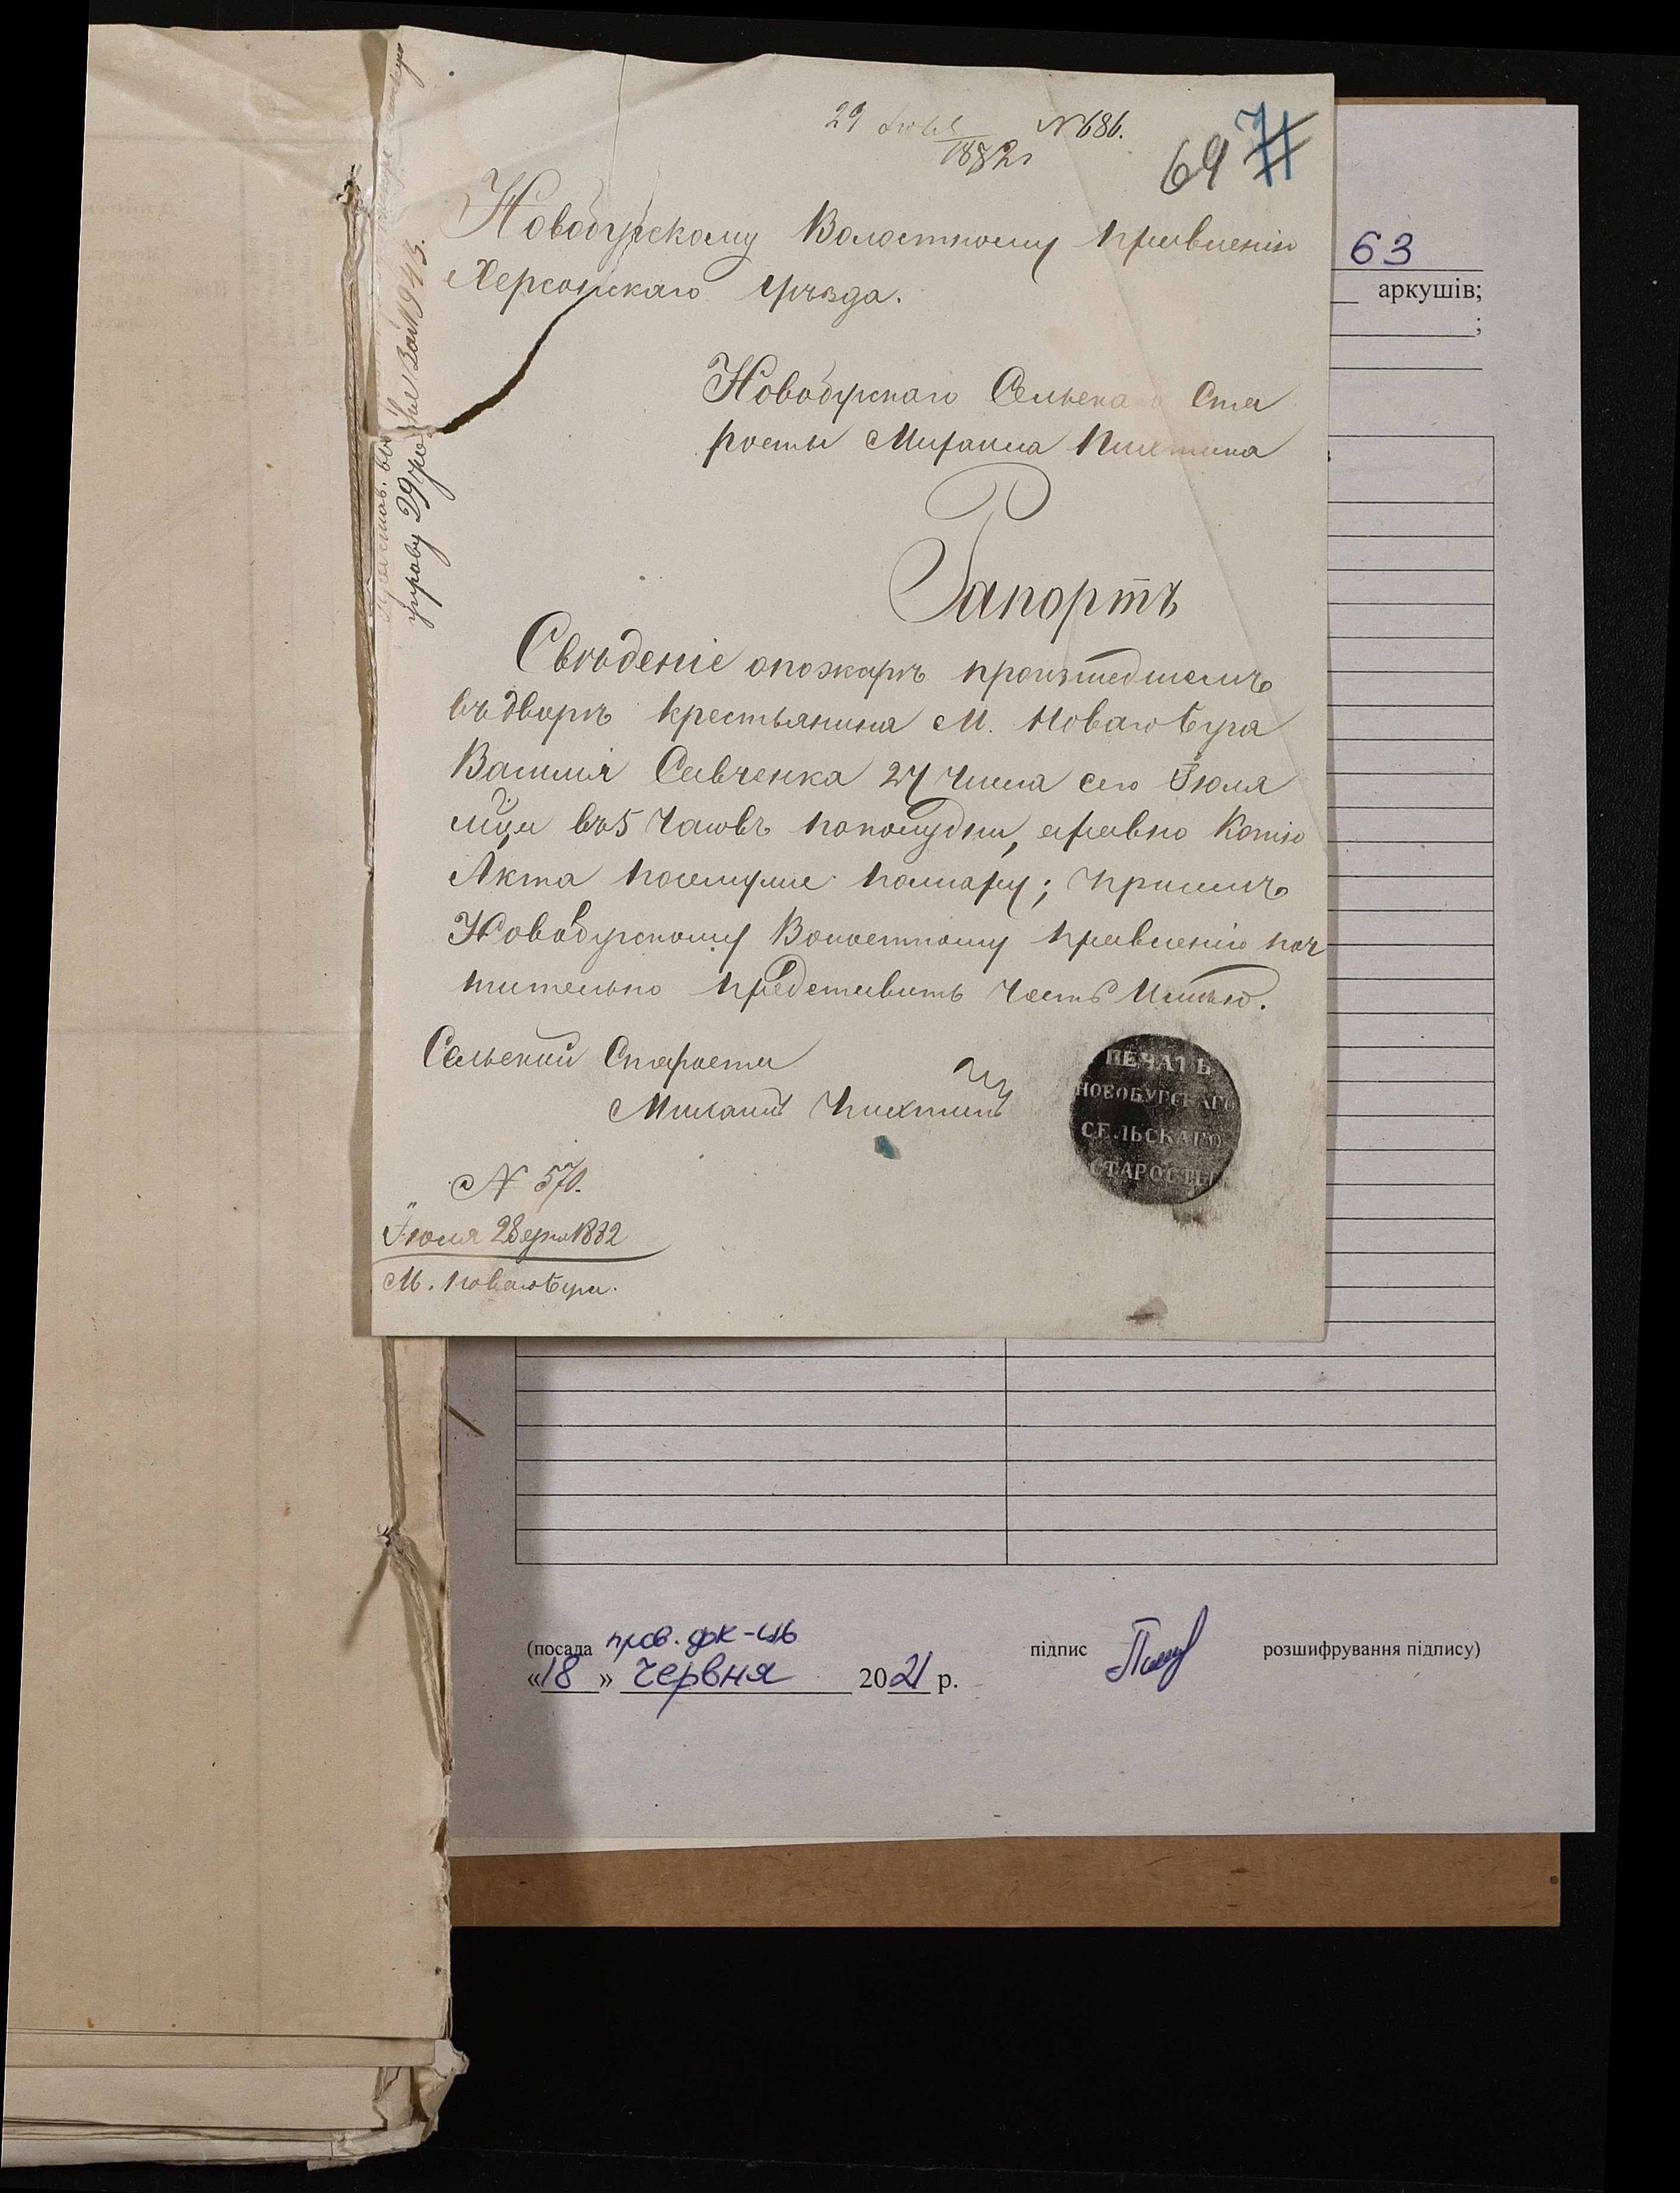 29 Іюля № 686.
1882 г
69
71
Новобугскому Волостному Правленію
Херсонскаго Уѣзда.
Новобугскаго Сельскаго Ста
росты Михаила
Рапортъ
Свѣденіе опожарѣ произшедшемъ
въ дворѣ крестьянина М. Новаго Буга
Василія Савченка 27 числа сего Іюля
мца въ 5 часовъ пополудни, аравно Копію
Акта посему же пожару; присемъ
Новобугскому Волостному Правленію поч
тительно представить честь Имѣю.
Сельский Староста
Михаилъ
ПЕЧАТЬ
НОВОБУГСКАГО
СЕЛЬСКАГО
СТАРОСТЫ
№ 570.
Іюля 28 дня 1882
М. Новаго Буга.
управу 29 № 1943.
63
аркушів;
;
(посада пров. док-ць підпис розшифрування підпису)
«18» червня 2021 р.